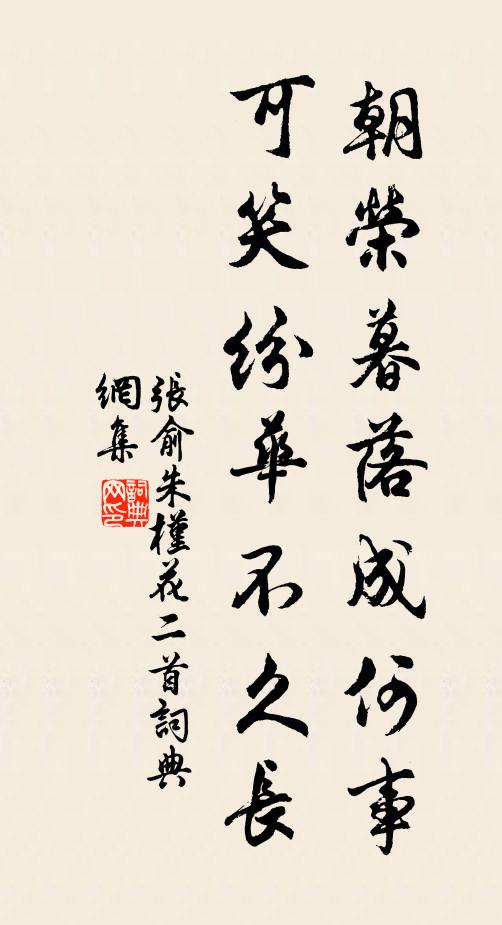 朝榮暮落成何事
可笑紛華不久長
張俞朱槿花二首詞典
網集
詞典
网印